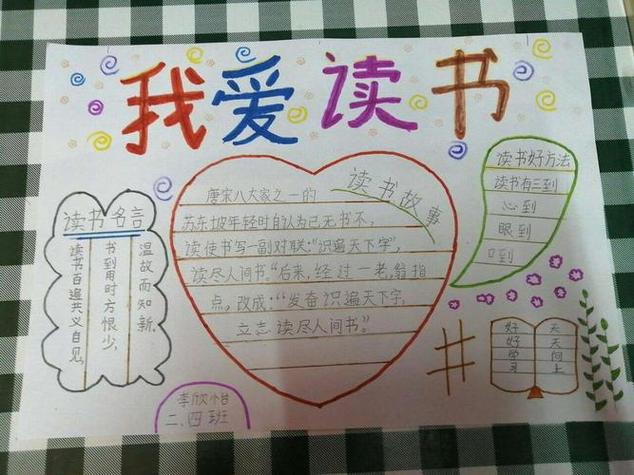 我爱读书
读书名言
温故而知新,
书到用时方恨少,
读书百遍其义自见,
读书故事
唐宋八大家之一的
苏东坡年轻时自认为已无书不,
读使书写一副对联:“识遍天下字”,
读尽人间书.”后来,经过一老翁指
点,改成:“发奋识遍天下字,
立志读尽人间书.”
读书好方法
读书有三到
心到
眼到
口到
好好学习
天天向上
李欣怡
二.四班